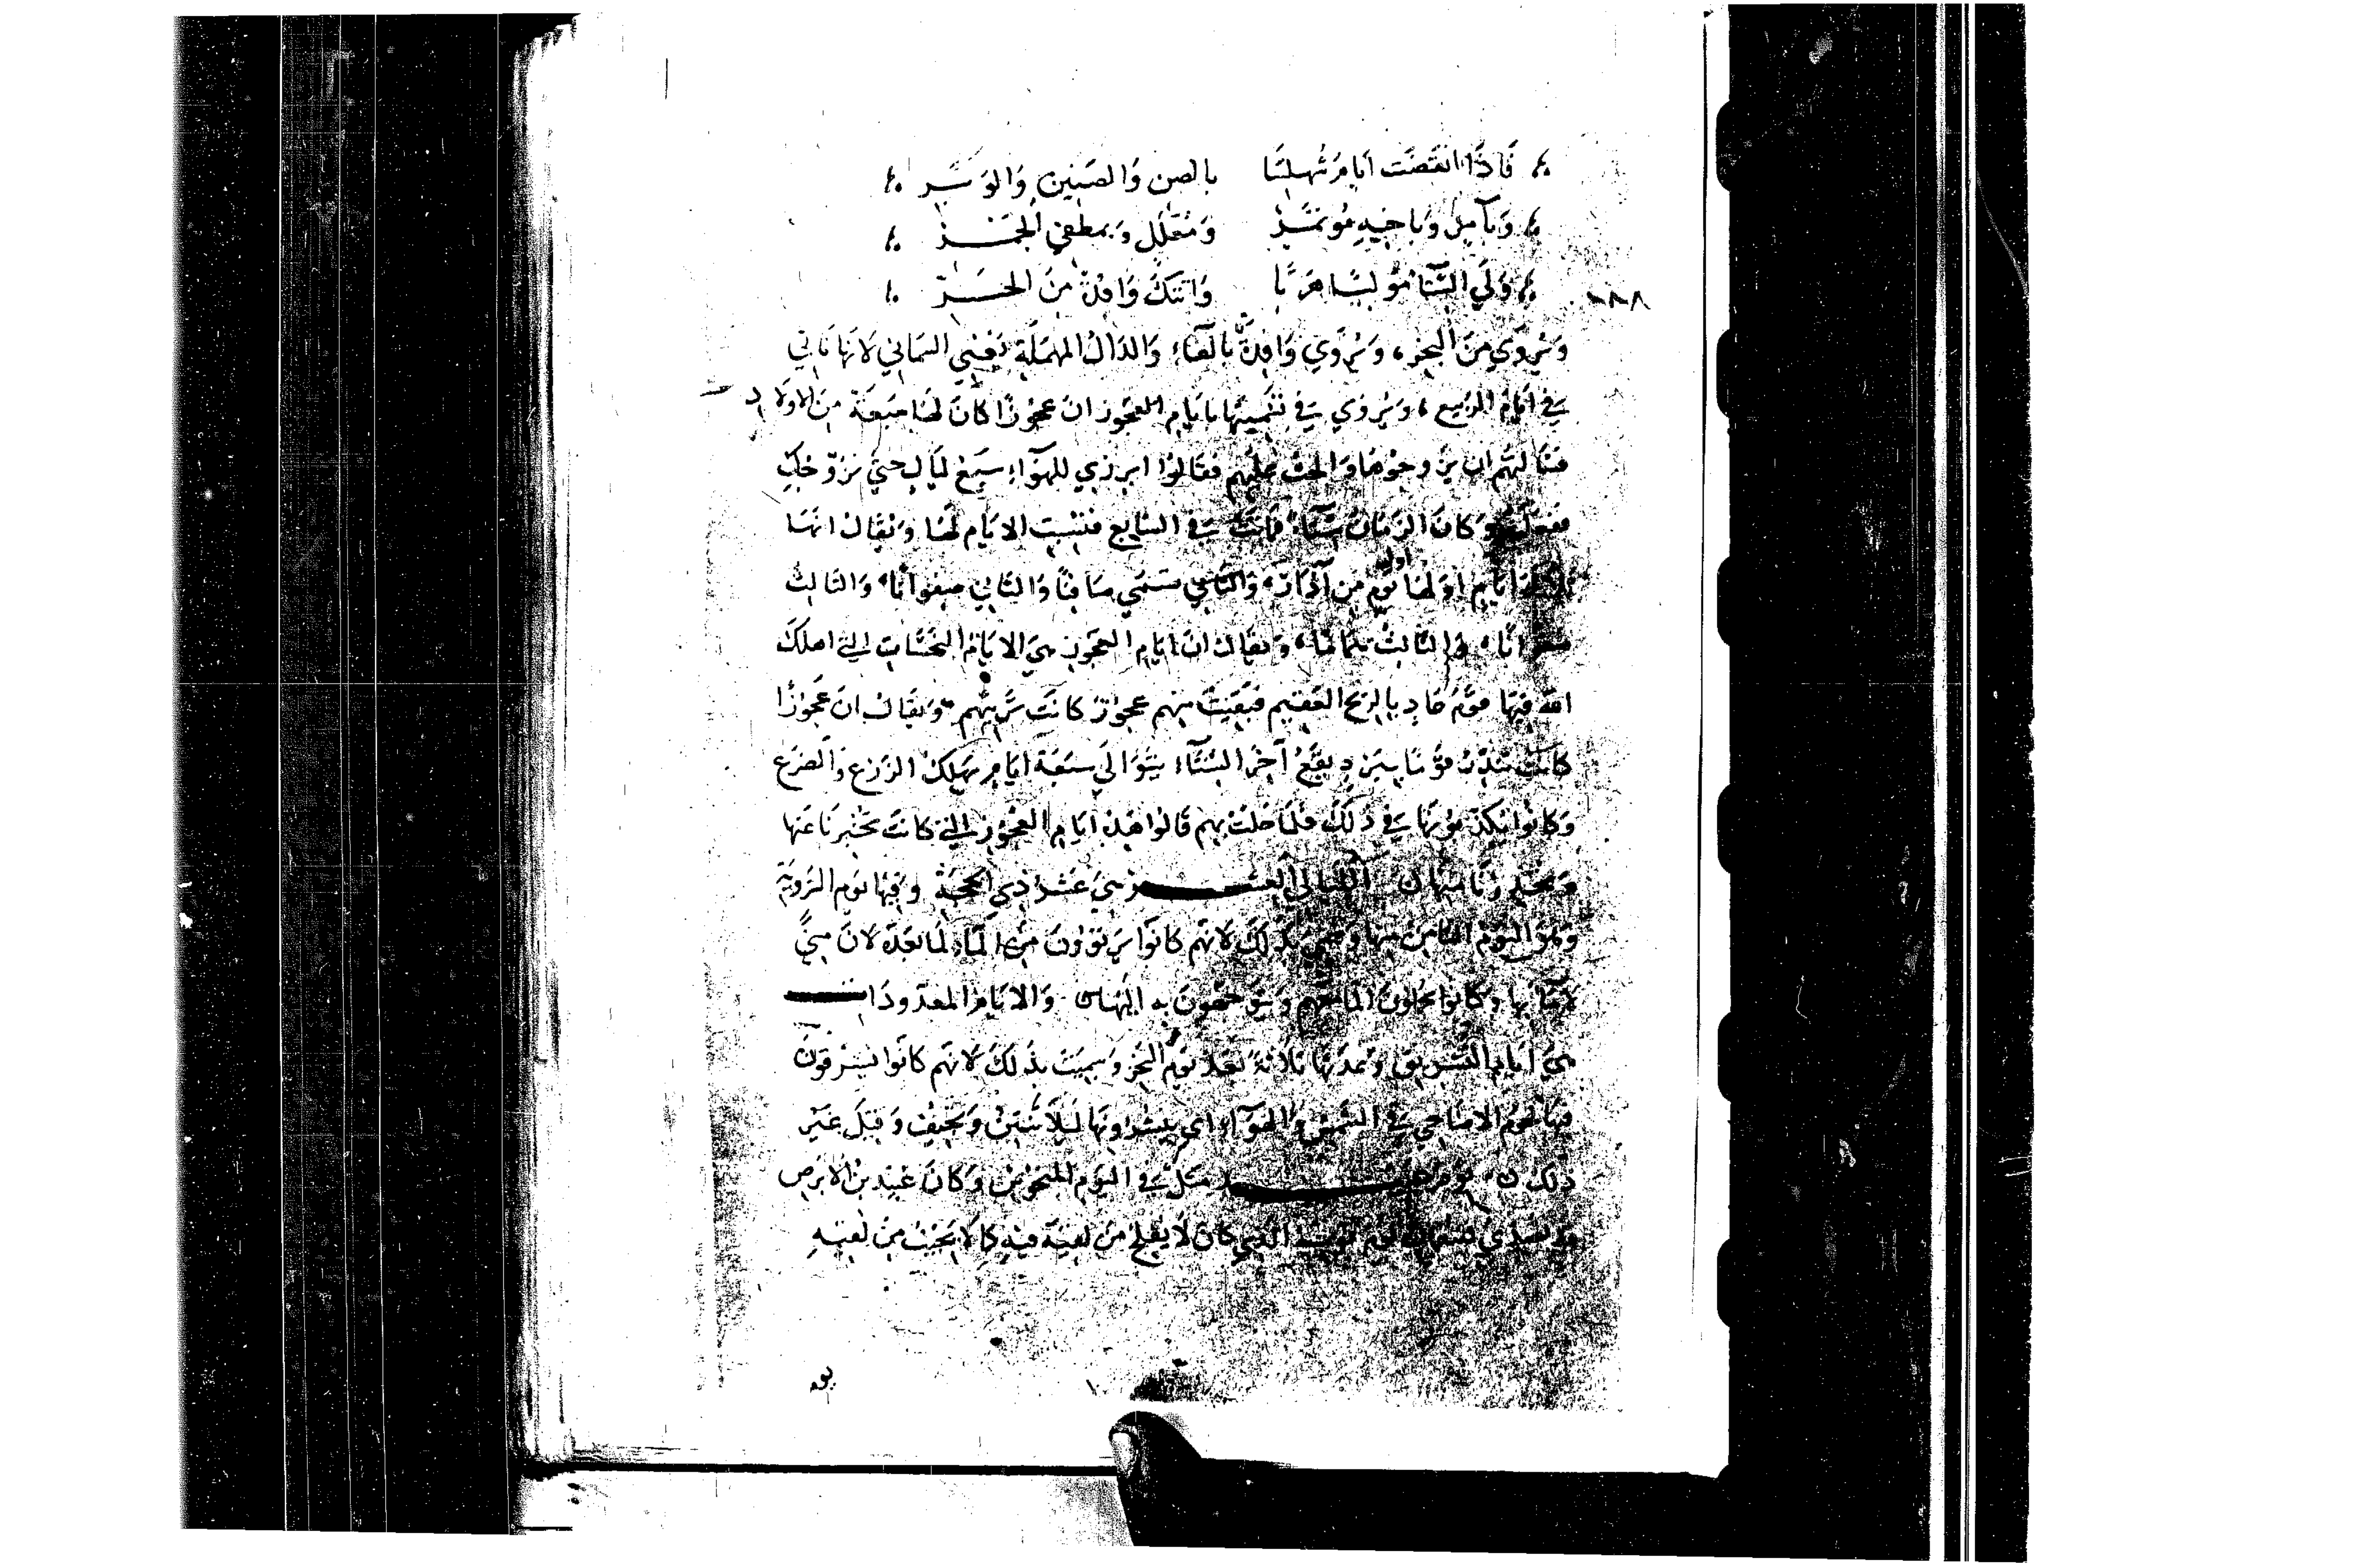 فَاِذَا انقَضَت ايام شهلتنا بالصن وَالصنبر وَالوَبر
وَبآمِر وَبأخيهِ مُؤتمر وَمُعَلل وَبمطفي الجمر
وَلّي الشتآ مُوليًا هَربًا وَاتتكَ وَافدة مِنَ الحر
وَيُروَي مِنَ البحر، وَيُروَي وَافِدة بالفآء وَالدال المهملة يَعني السمائم لانها تاتي
في ايام الربيع، وَيُروَي في تسميتها بايام العجوز ان عجوزًا كانَ لها سَبعَة مِن الاولاد
فسَالتهم ان يزوجوهَا وَالحت عليهم فقَالوُا ابرزي للهوَآء سبع ليَالٍ حتي نزوجكِ
ففعلت وَكانَ الزمَان شتآء فماتت في السابع فنسبت الايام لهَا وَيقال انهَا
ايام اولهَا اول يَوم مِن آذار، وَالثاني صفوانًا، وَالثالث
وَيقال ان ايام العجوز هيَ الايام النحسَات التي اهلكَ
الله فيهَا قوم عَادٍ بالريح العقيم فبقيت منهم عجوز كانت ترثيهم وَيقال ان عجوزًا
كانت تنذر قومًا ببرد يقع آخر الشتآء يتوَالي سبعَة ايام يهلك الزرع وَالضرع
وَكانوا يكذبونها في ذلكَ فلما حَلت بهم قالوا هَذِه ايام العجوز التي كانت تخبرنا عَنها
وَتحذرنا منها ن الليالي العشر هيَ عَشر ذي الحجة وَفيهَا يَوم الترويَة
وَهو اليوم الثامن منها وَسمي بذلكَ لانهم كانوا يرتوُونَ مِنَ المآء لما بَعده لانَّ مِنيً
لا مآ بها وَكانوا يحملون المآ معهم وَيتوَجهون به اليهَا ن وَالايام المعدودَات
هيَ ايام التشريق وَعدتها ثلاثة بَعد يَوم النحر وَسميت بذلكَ لانهم كانوا يشرقونَ
فيها لحوم الاضاحي في الشمس وَالهوَآء اي ينشرونها ليلا تنتن وَتجيف وَقيل غَير
ذلك ن يَوم عبيد مثل في اليَوم المنحوس وَكانَ عبيد بن الابرَص
الذي كان لا يفلح مَن لقيَه فيه كما لا ينجب مَن لقيَه